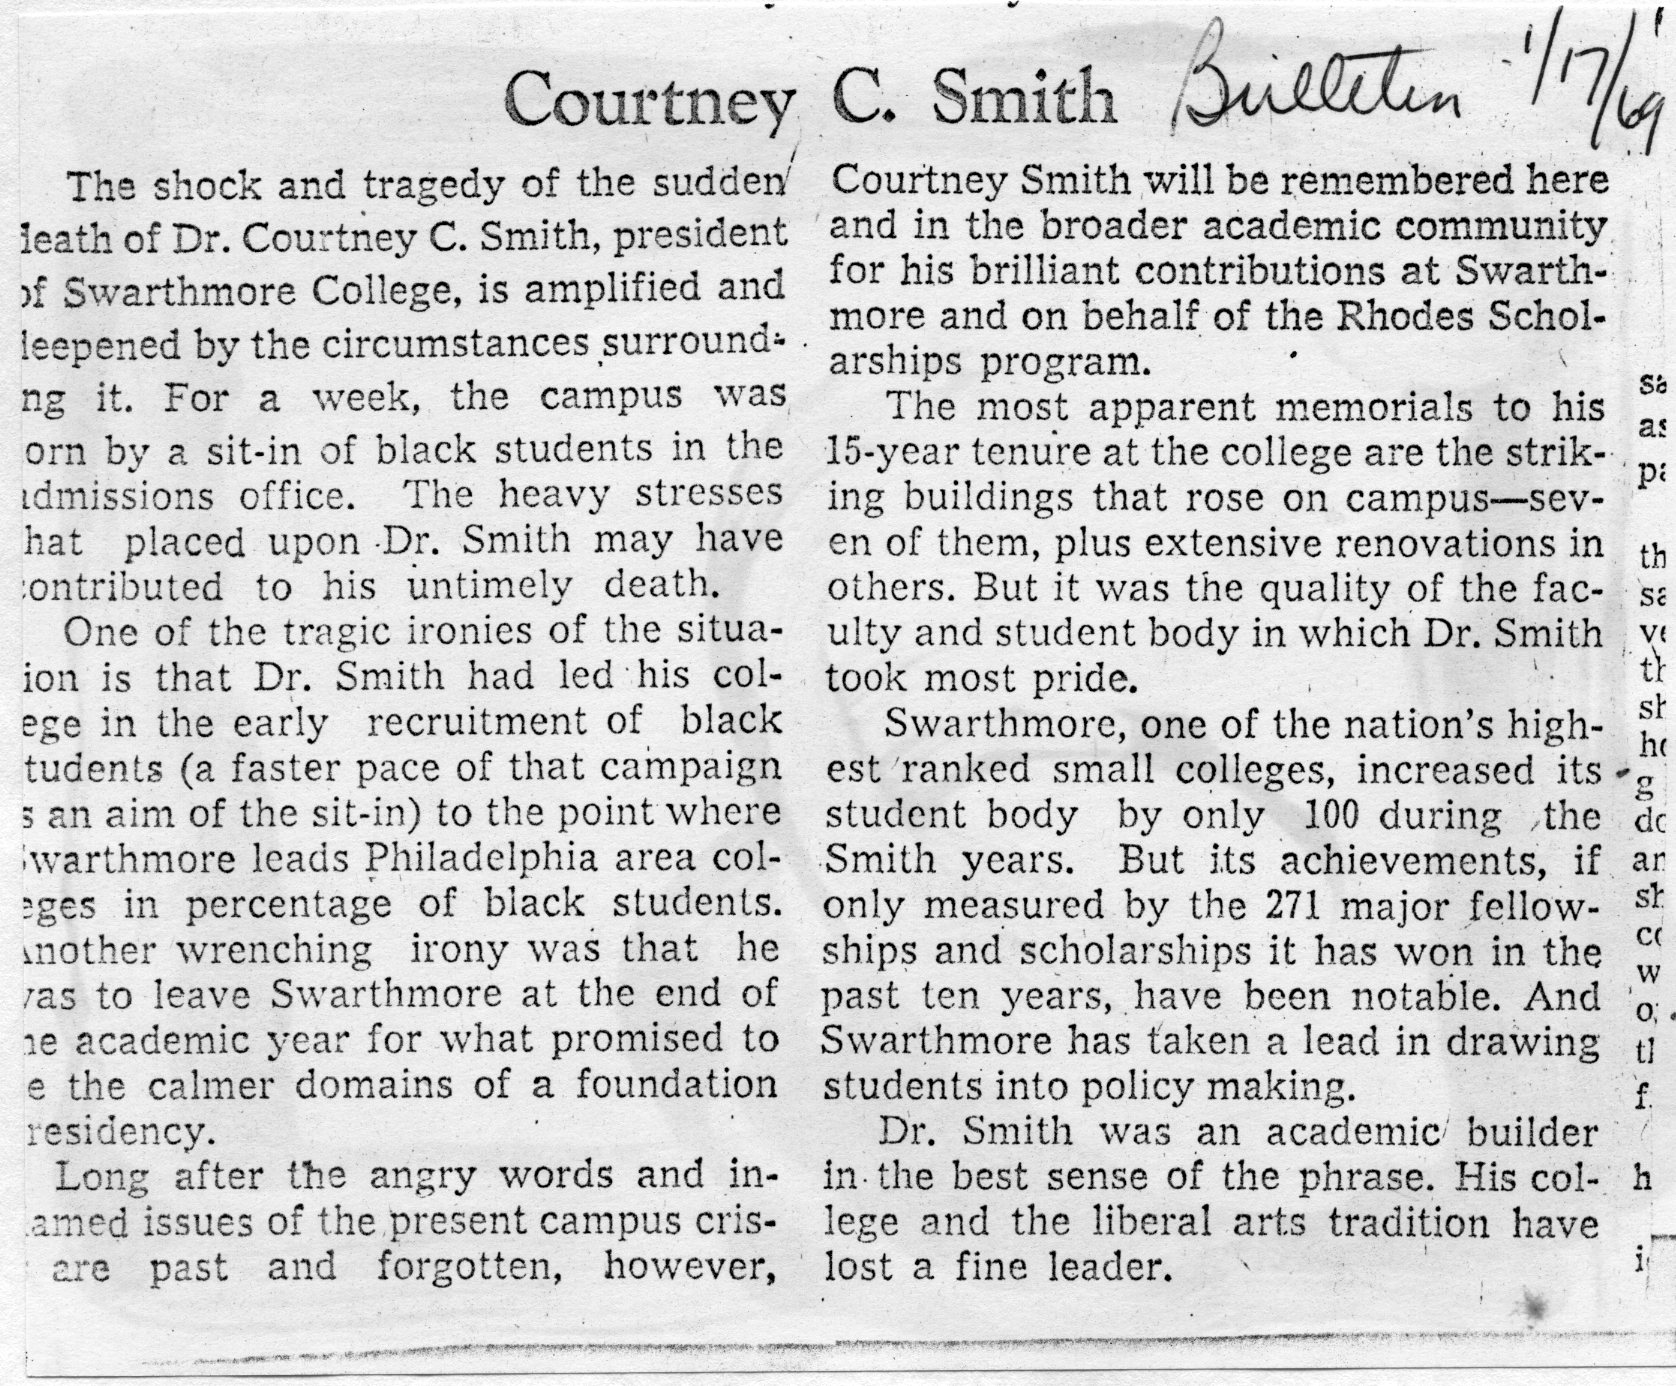 Courtney C. Smith Bulletin 1/17/69
The shock and tragedy of the sudden
leath of Dr. Courtney C. Smith, president
of Swarthmore College, is amplified and
leepened by the circumstances surround-
ng it. For a week, the campus was
orn by a sit-in of black students in the
admissions office. The heavy stresses
hat placed upon Dr. Smith may have
contributed to his untimely death.
One of the tragic ironies of the situa-
ion is that Dr. Smith had led his col-
ege in the early recruitment of black
tudents (a faster pace of that campaign
s an aim of the sit-in) to the point where
Swarthmore leads Philadelphia area col-
eges in percentage of black students.
Another wrenching irony was that he
was to leave Swarthmore at the end of
he academic year for what promised to
e the calmer domains of a foundation
residency.
Long after the angry words and in-
lamed issues of the present campus cris-
are past and forgotten, however,
Courtney Smith will be remembered here
and in the broader academic community
for his brilliant contributions at Swarth-
more and on behalf of the Rhodes Schol-
arships program.
The most apparent memorials to his
15-year tenure at the college are the strik-
ing buildings that rose on campus—sev-
en of them, plus extensive renovations in
others. But it was the quality of the fac-
ulty and student body in which Dr. Smith
took most pride.
Swarthmore, one of the nation's high-
est ranked small colleges, increased its
student body by only 100 during the
Smith years. But its achievements, if
only measured by the 271 major fellow-
ships and scholarships it has won in the
past ten years, have been notable. And
Swarthmore has taken a lead in drawing
students into policy making.
Dr. Smith was an academic builder
in the best sense of the phrase. His col-
lege and the liberal arts tradition have
lost a fine leader.